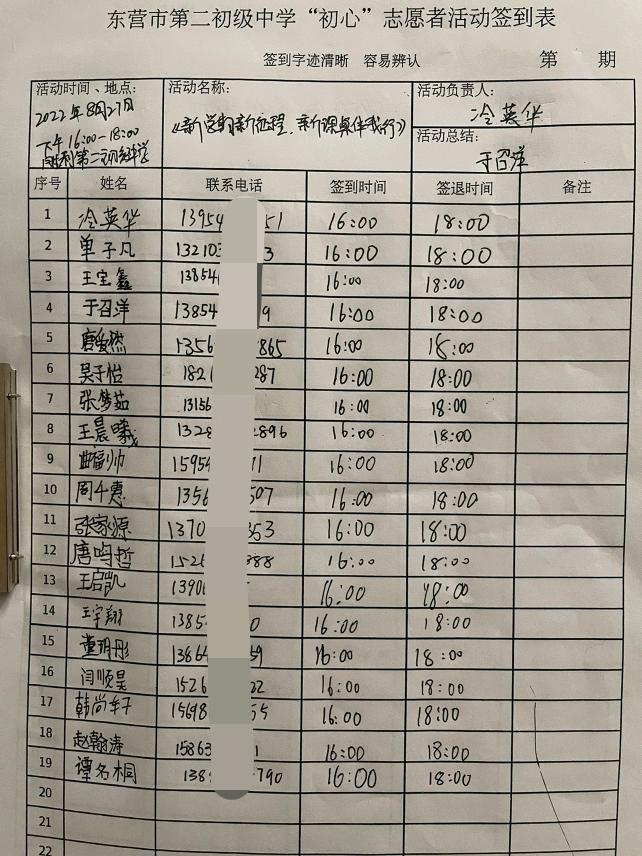 东营市第二初级中学“初心”志愿者活动签到表
签到字迹清晰 容易辨认 第 期
活动时间、地点: 2022年8月27日 下午16:00-18:00 胜利第二初级中学
活动名称: 《新学期新征程,新课桌伴我行》
活动负责人: 冷英华
活动总结: 于召洋
序号 姓名 联系电话 签到时间 签退时间 备注
1 冷英华 13954 51 16:00 18:00
2 单子凡 132103 3 16:00 18:00
3 王宝鑫 13854 16:00 18:00
4 于召洋 13854 9 16:00 18:00
5 唐爱然 1356 865 16:00 18:00
6 吴子怡 182 287 16:00 18:00
7 张梦茹 13156 16:00 18:00
8 王晨曦 1328 2896 16:00 18:00
9 曲福帅 15954 11 16:00 18:00
10 周千惠 1356 507 16:00 18:00
11 张家源 1370 353 16:00 18:00
12 唐鸣哲 1526 388 16:00 18:00
13 王启凯 1390 16:00 18:00
14 王宇翔 1385 0 16:00 18:00
15 董玥彤 13864 59 16:00 18:00
16 闫顺昊 1526 22 16:00 18:00
17 韩尚轩 15698 55 16:00 18:00
18 赵翰涛 15863 1 16:00 18:00
19 谭名桐 138 790 16:00 18:00
20
21
22